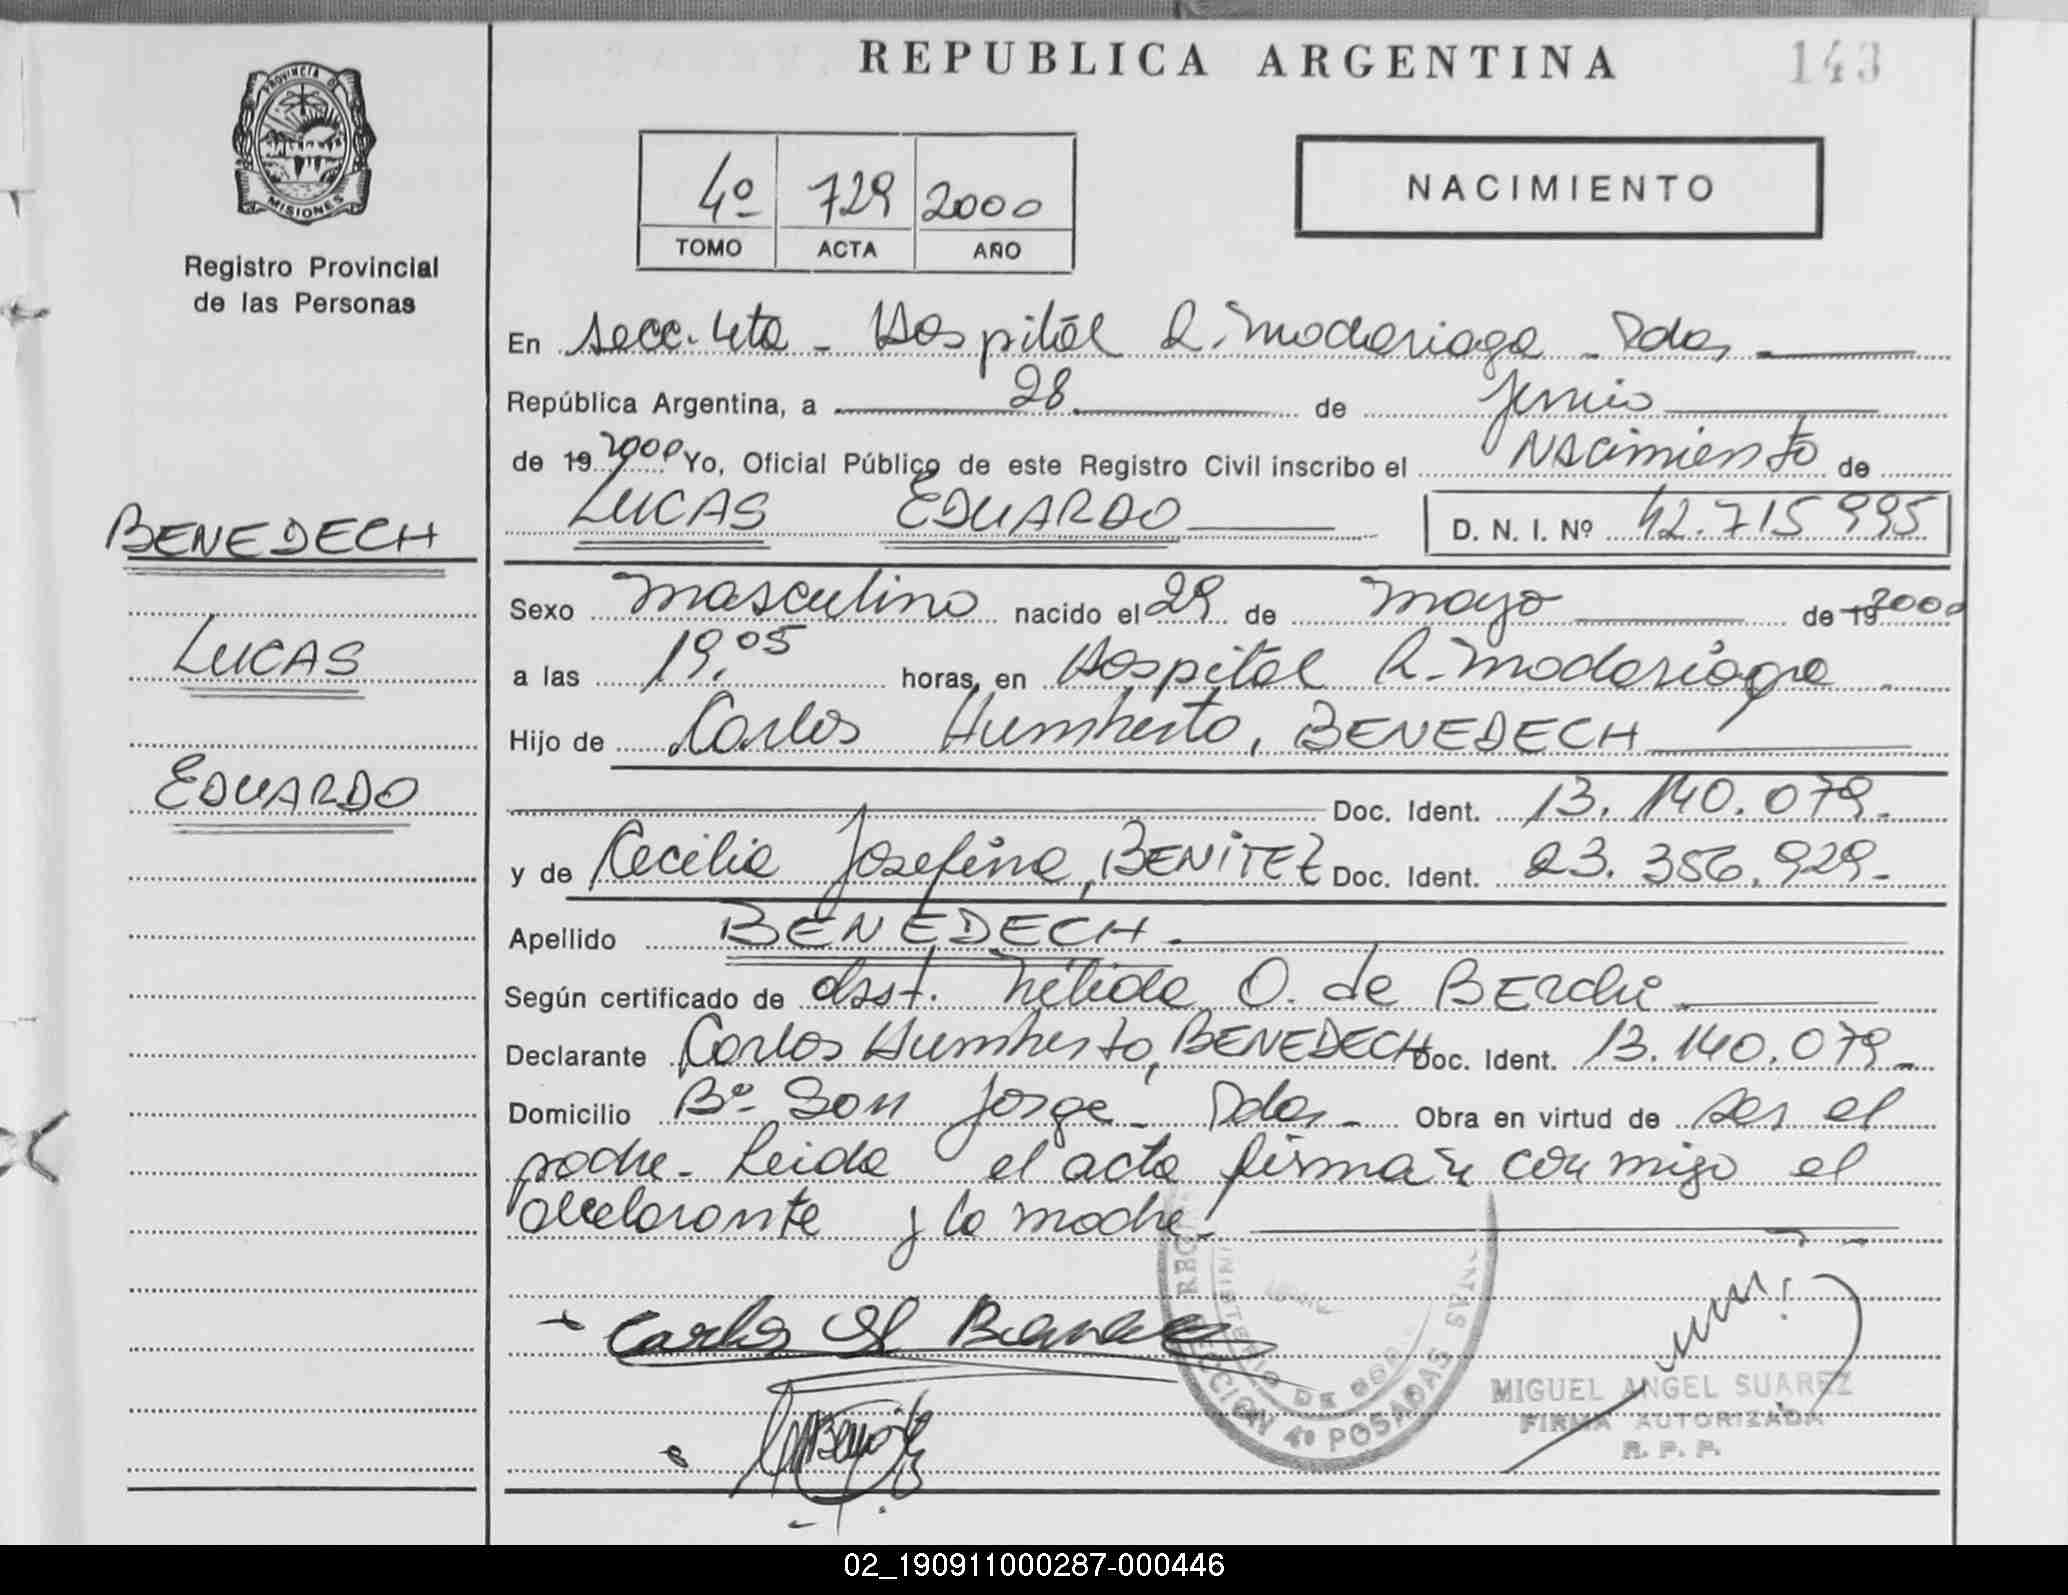 REPUBLICA ARGENTINA
143
PROVINCIA DE
MISIONES
Registro Provincial
de las Personas
4º 729 2000
TOMO ACTA AÑO
NACIMIENTO
En Secc. 4ta - Hospital R. Madariaga - Pdas
República Argentina, a 28 de Junio
de 19 2000 Yo, Oficial Público de este Registro Civil inscribo el Nacimiento de
LUCAS EDUARDO D. N. I. Nº 42.715995
BENEDECH
LUCAS
EDUARDO
Sexo masculino nacido el 29 de mayo de 19 2000
a las 19,05 horas, en Hospital R. Madariaga
Hijo de Carlos Humberto, BENEDECH
Doc. Ident. 13.140.079.-
y de Cecilia Josefina, BENITEZ Doc. Ident. 23.356.929.-
Apellido BENEDECH.
Según certificado de Nélida O. de
Declarante Carlos Humberto, BENEDECH Doc. Ident. 13.140.079.-
Domicilio Bº San Jorge - Pdas - Obra en virtud de ser el
padre - Leida el acta firman conmigo el
declarante y la madre.
Carlos H
SECCION 4º POSADAS
MIGUEL ANGEL SUAREZ
FIRMA AUTORIZADA
R. P. P.
02_190911000287-000446